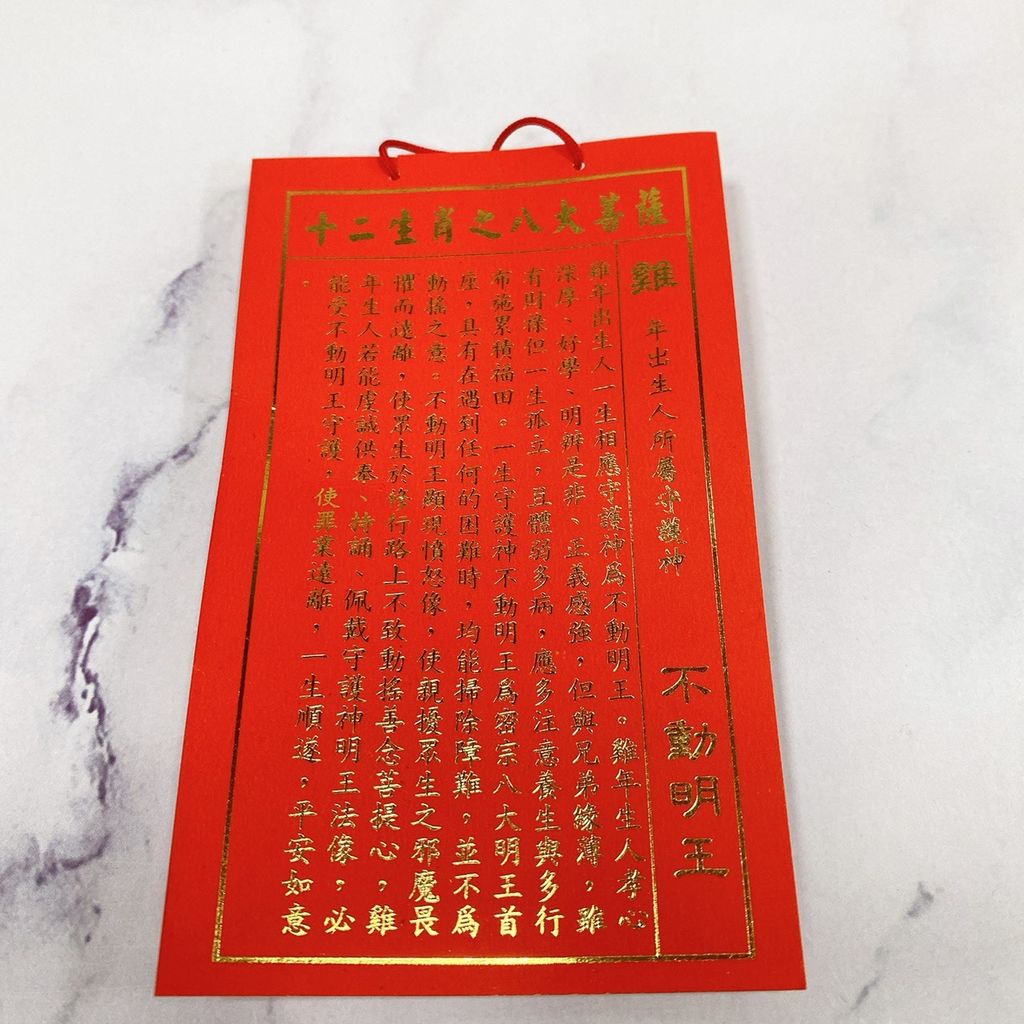 十二生肖之八大菩薩
雞 年出生人所屬守護神 不動明王
雞年出生人一生相應守護神為不動明王。雞年生人孝心
深厚、好學、明辨是非、正義感強，但與兄弟緣薄，雖
有財祿但一生孤立，且體弱多病，應多注意養生與多行
布施累積福田。一生守護神不動明王為密宗八大明王首
座，具有在遇到任何的困難時，均能掃除障難，並不為
動搖之意。不動明王顯現憤怒像，使親擾眾生之邪魔畏
懼而遠離，使眾生於修行路上不致動搖善念菩提心，雞
年生人若能虔誠供奉、持誦、佩戴守護神明王法像，必
能受不動明王守護，使罪業遠離，一生順遂，平安如意
。